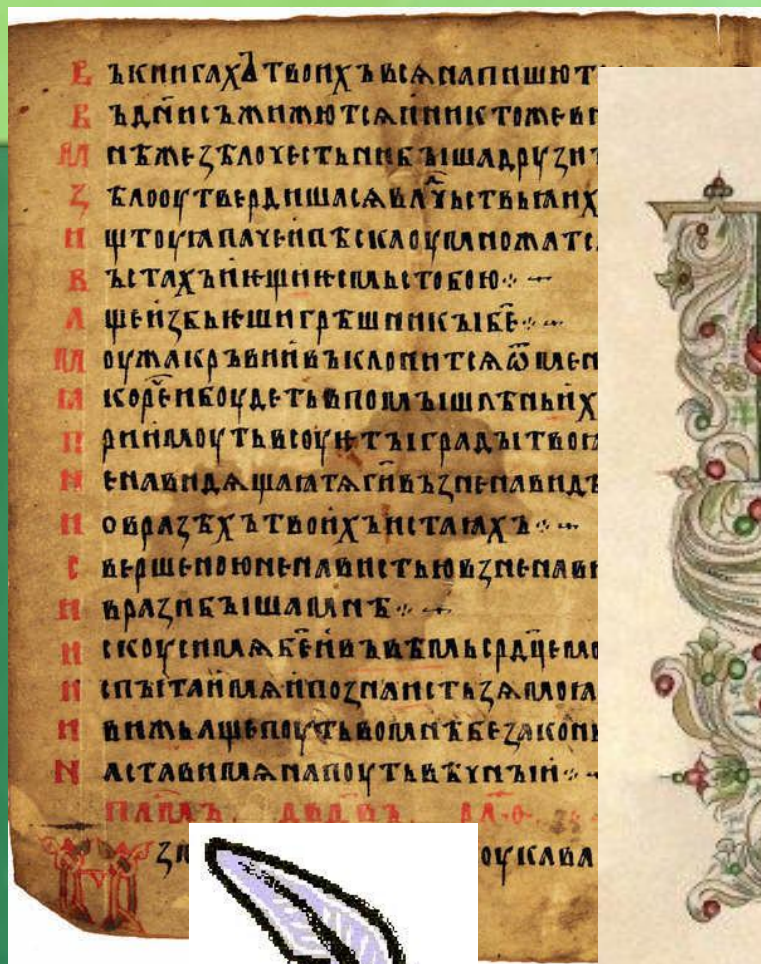 Въкнигахътвоихъвсѧнапишют
Въдн҃исъжижютсѧиниктожевн
Мнѣжеꙁѣлочестьнибꙑшадрѹꙁи
Ꙁѣлооутвердишасѧвлⷣчьствиꙗих
Иштоуꙗпачеипѣскаоумножатс
Въстахъиѥщиѥсмьстобою
Ащеиꙁбьѥшигрѣшникꙑб҃е
Моужакръвиивъклонитсѧѿмен
Ꙗкоре҃нибоудетьвпомꙑшлѣньих
Приимоутьвсоуѥтꙑградꙑтвоꙗ
Ненавидѧщаꙗтѧг҃ивъꙁненавидѣ
Иовраꙁѣхътвоихъистаꙗхъ
Свершеноюненавистьювꙁненави
Ивраꙁибꙑшамнѣ
Искоусимѧб҃еивъвѣмьсрд҃цемо
Испꙑтаимѧипоꙁнаистьꙁѧмоꙗ
Ивижьащепоутьвомнѣбеꙁаконь
Наставимѧнапоутьвѣчнꙑи
двдвъ. рл·ѳ·
оукава